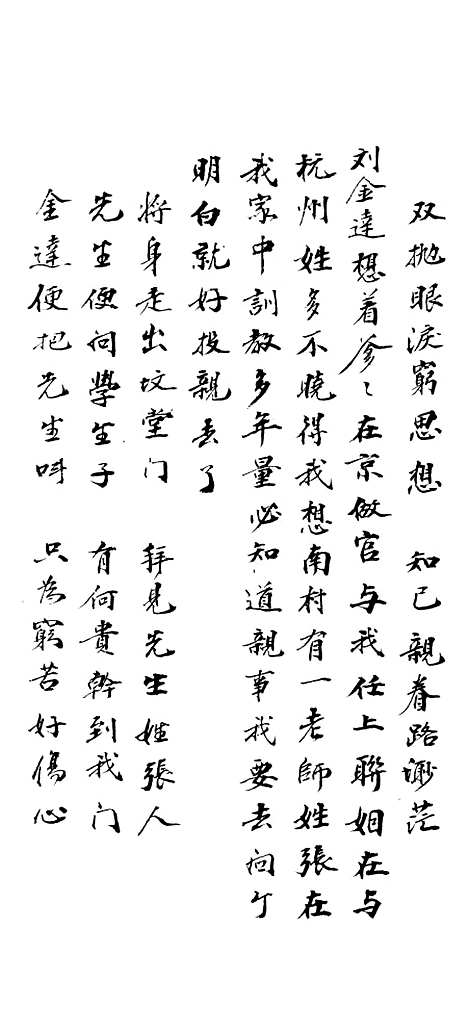 双抛眼淚窮思想　知已親眷路渺茫
刘金達想着爹〻在京做官与我任上聯姻在与
杭州姓多不曉得我想南村有一老師姓張在
我家中訓教多年量必知道親事我要去问个
明白就好投親去了
将身走出坟堂门　拜見先生姓張人
先生便问學生子　有何貴幹到我门
金達便把先生叫　只為窮苦好傷心